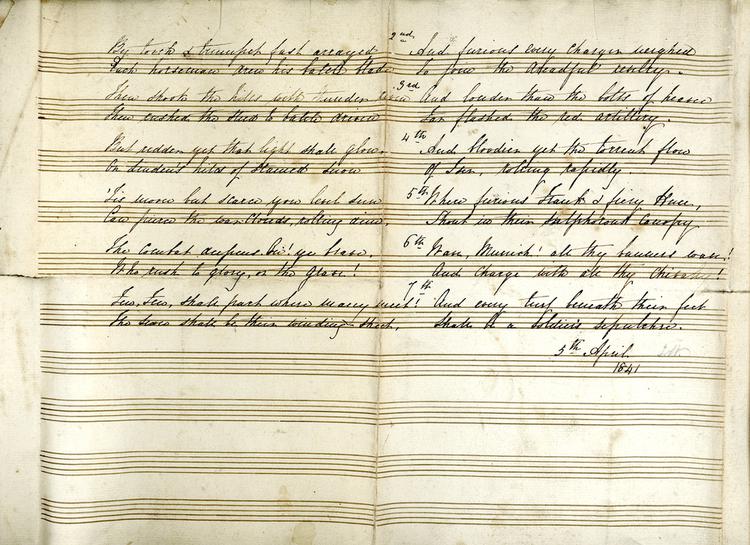 By torch & trumpet fast arrayed
Each horseman drew his batel blade
2nd And furious every charger neighed
To join the dreadful revelry.
Then shook the hills with thunder riven
Then rushed the steed to batele driven
3rd And louder than the bolts of heaven
Far flashed the red artillery.
But redden yet that light shall glow
On Lindens hills of stained snow
4th And bloodier yet the torrent flow
Of Iser, rolling rapidly.
'Tis morn but scarce yon level sun
Can pierce the war clouds, rolling dun,
5th Where furious Frank & fiery Hun,
Shout in their sulphrous canopy
The combat deepens. On! ye brave,
Who rush to glory, or the grave!
6th Wave, Munich! all thy banners wave!
And Charge with all thy Chivalry!
Few, Few, shall part where many meet!
The snow shall be their winding-sheet,
7th And every turf beneath their feet
Shall be a Soldiers sepulchre.
5th April
1841